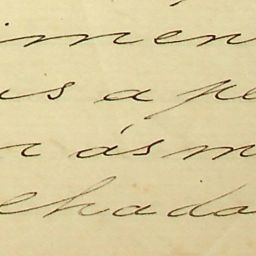 imen
is a pe
r ás m
chada